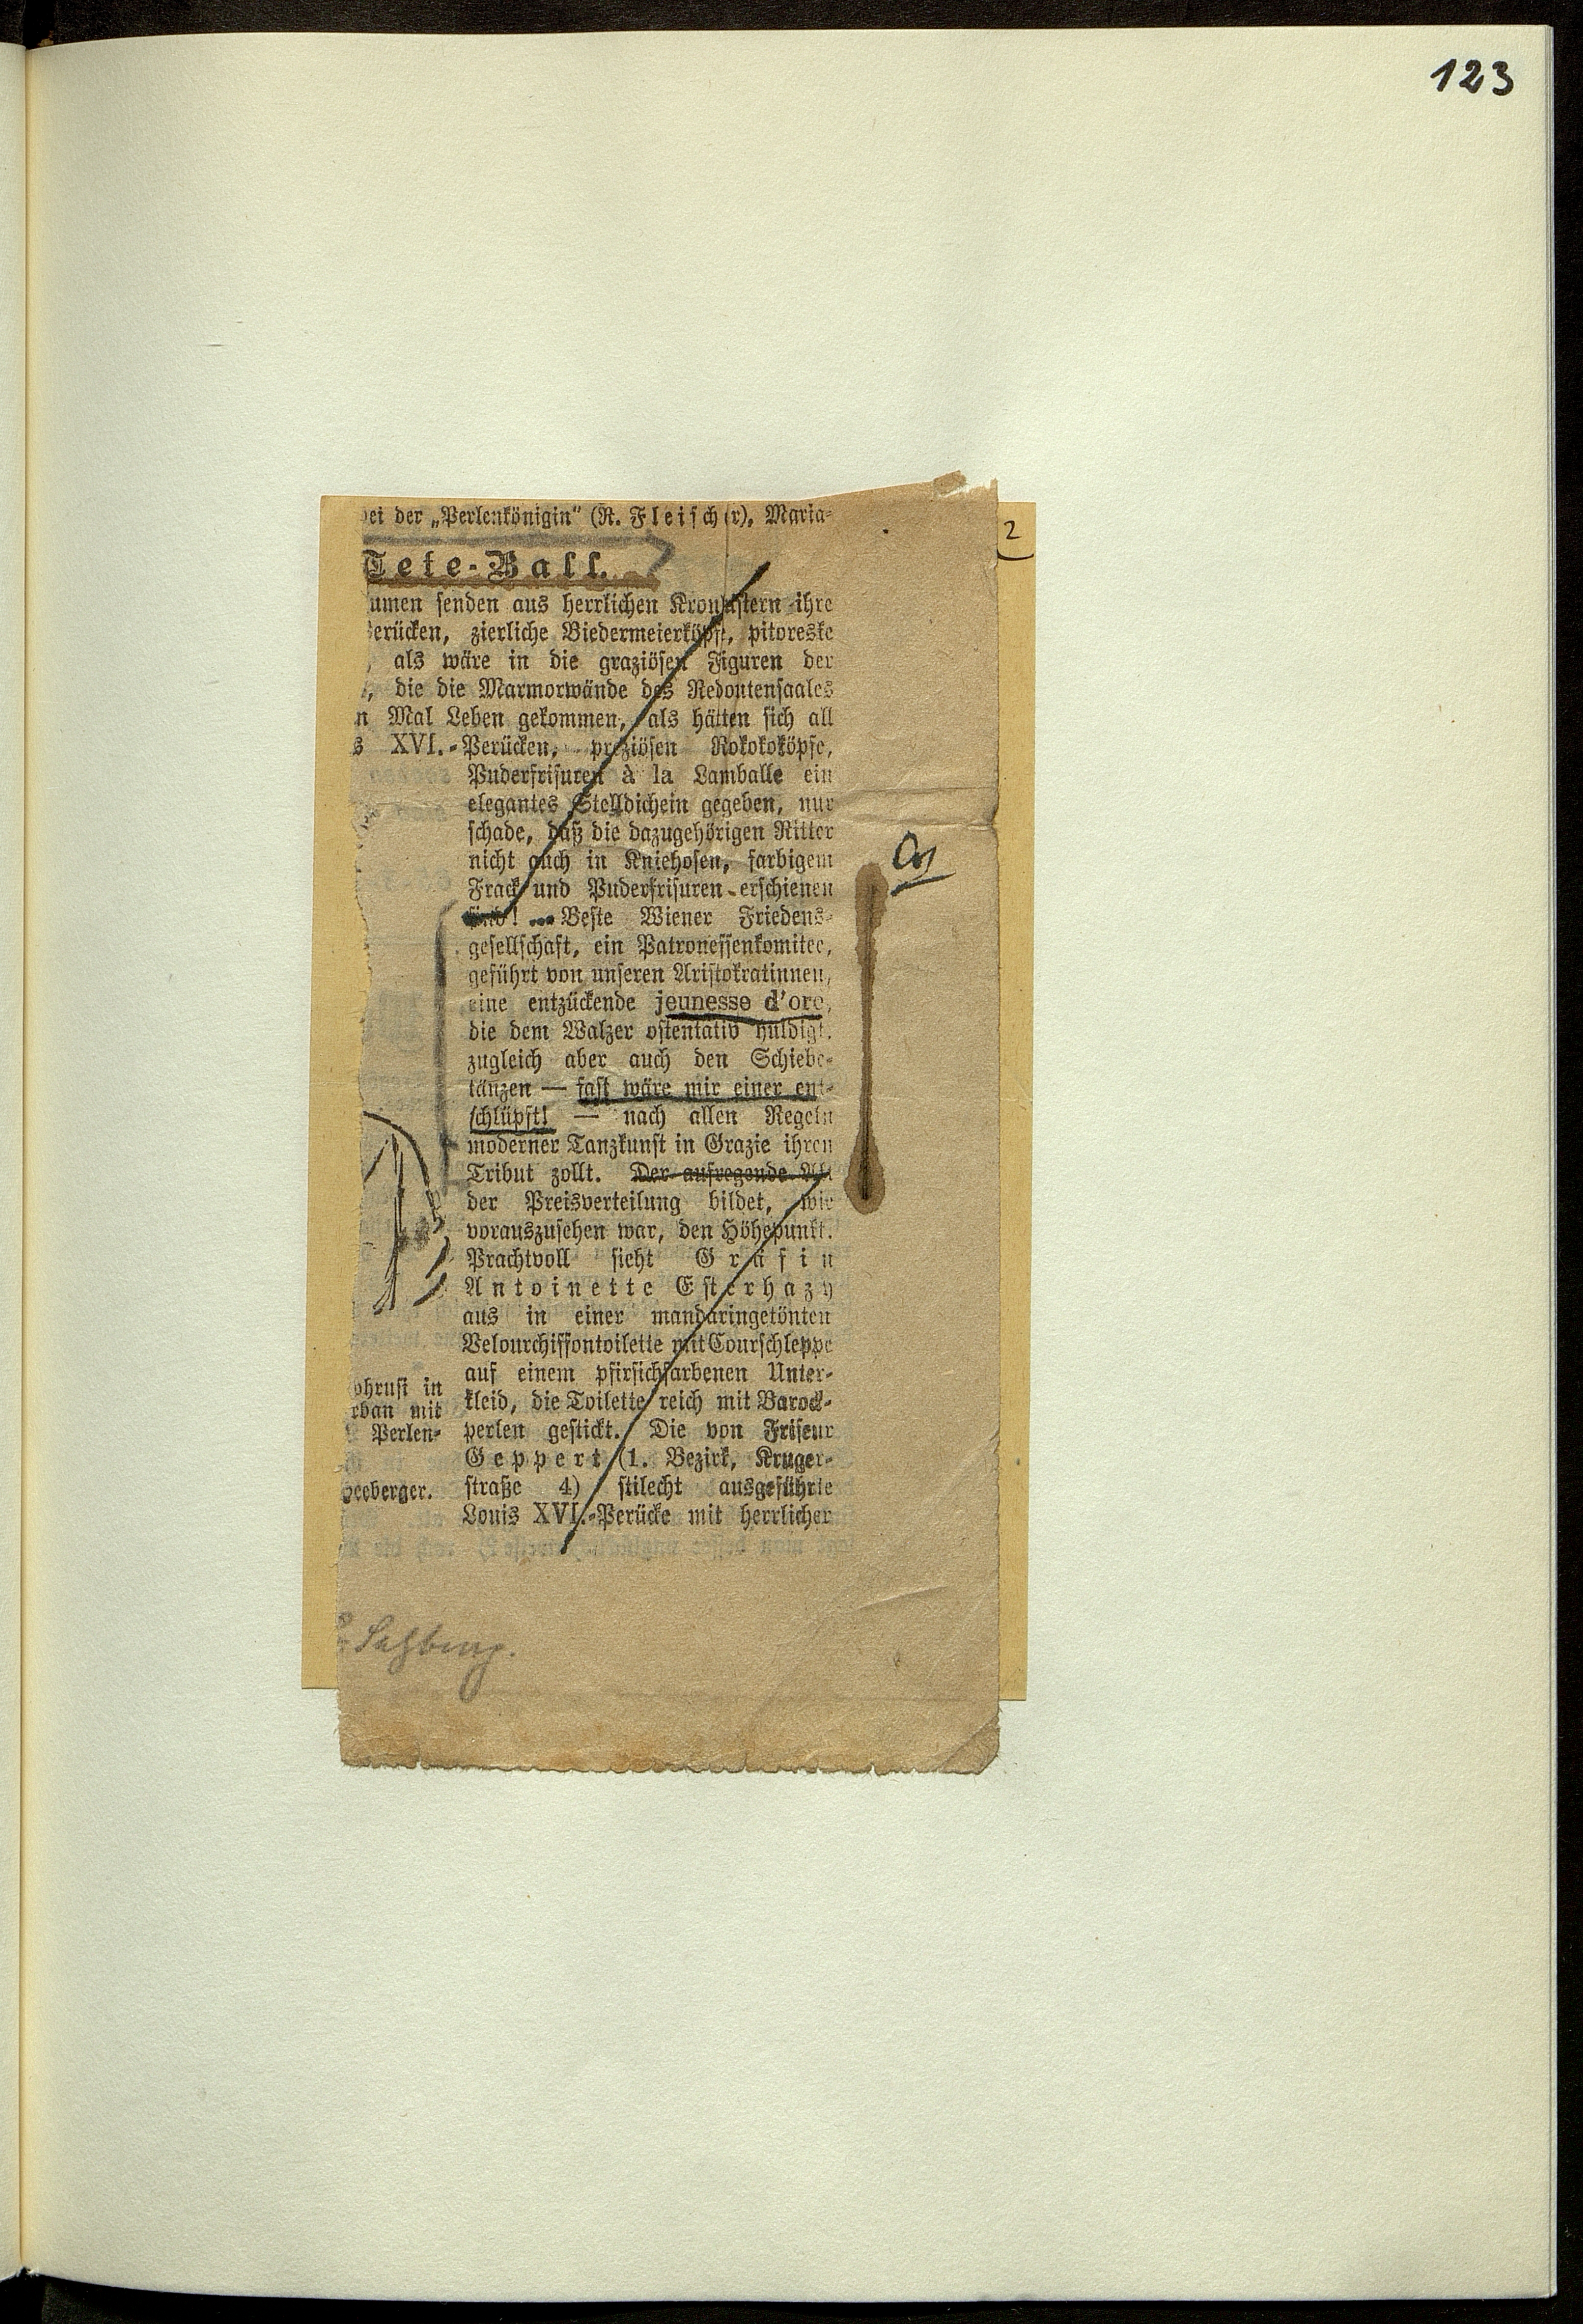 123
2
bei der „Perlenkönigin" (R. Fleischer), Maria-
Tete-Ball.
umen senden aus herrlichen Kronlustern ihre
Perücken, zierliche Biedermeierköpfe, pitoreske
, als wäre in die graziösen Figuren der
, die die Marmorwände des Redoutensaales
n Mal Leben gekommen, als hätten sich all
s XVI.-Perücken, preziösen Rokokoköpfe,
Puderfrisuren à la Lamballe ein
elegantes Stelldichein gegeben, nur
schade, daß die dazugehörigen Ritter
nicht auch in Kniehosen, farbigem
Frack und Puderfrisuren erschienen
sind! ... Beste Wiener Friedens-
gesellschaft, ein Patronessenkomitee,
geführt von unseren Aristokratinnen,
eine entzückende jeunesse d'ore,
die dem Walzer ostentativ huldigt,
zugleich aber auch den Schiebe-
tänzen — fast wäre mir einer ent-
schlüpft! — nach allen Regeln
moderner Tanzkunst in Grazie ihren
Tribut zollt. Der aufregende Akt
der Preisverteilung bildet, wie
vorauszusehen war, den Höhepunkt.
Prachtvoll sieht Gräfin
Antoinette Esterhazy
aus in einer mandaringetönten
Velourchiffontoilette mit Courschleppe
auf einem pfirsichfarbenen Unter-
kleid, die Toilette reich mit Barock-
perlen gestickt. Die von Friseur
Geppert (1. Bezirk, Kruger-
straße 4) stilecht ausgeführte
Louis XVI.-Perücke mit herrlicher
phrusi in
rban mit
Perlen-
eeberger.